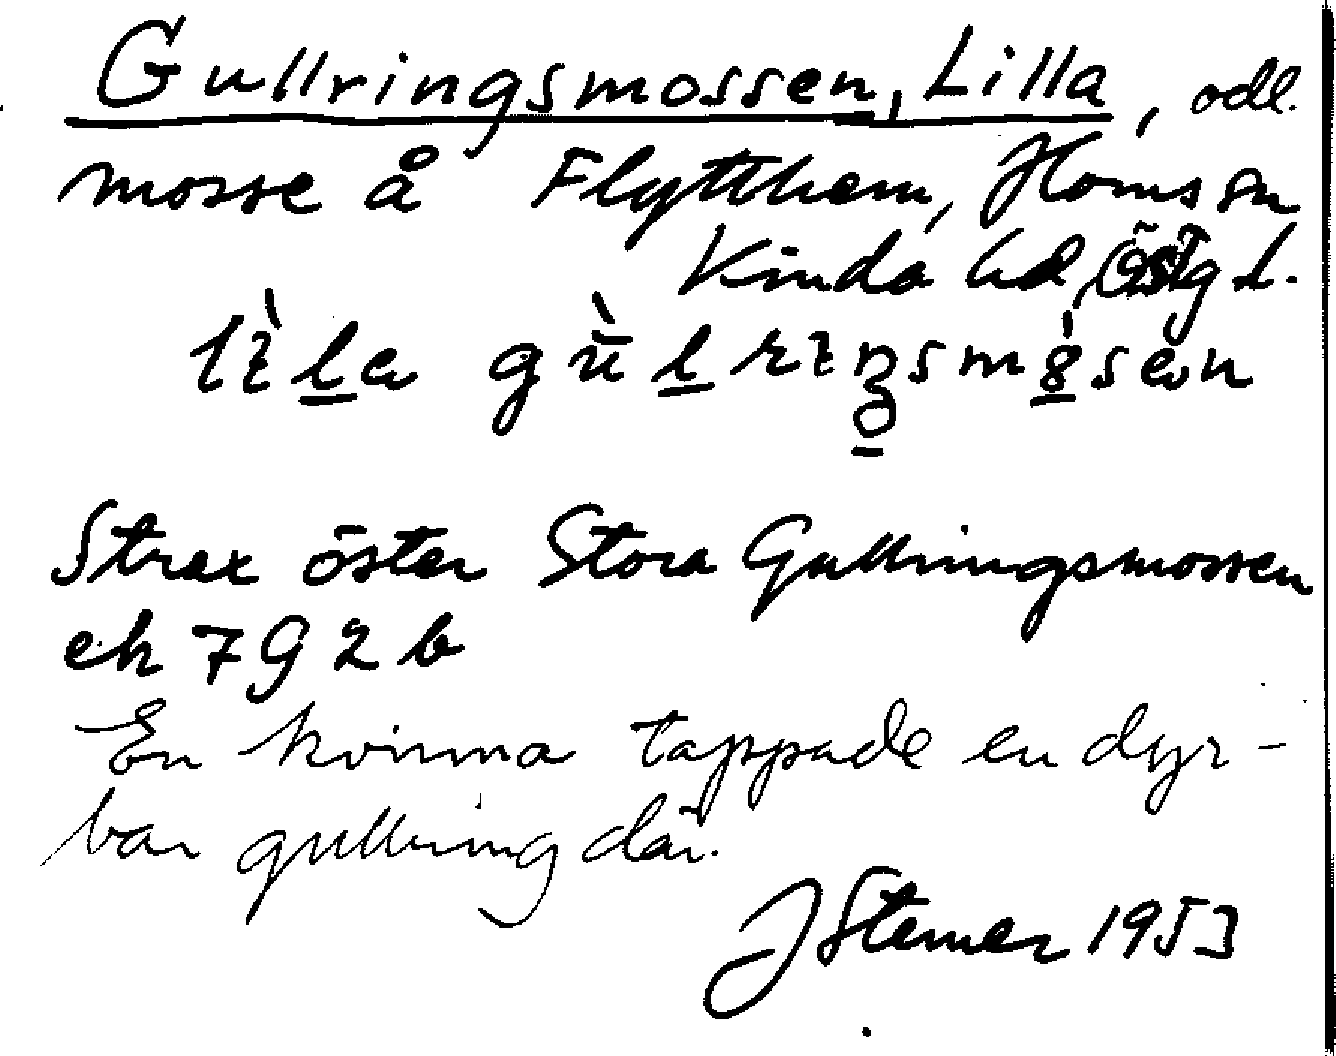 Gullringsmossen, Lilla, odl.
mosse å Flytthem, Horns sn
Kinda hd, Östg l.
Strax öster Stora Gullringsmossen
ek 792b
En kvinna tappade en dyr-
bar gullring där.
J Sterner 1953